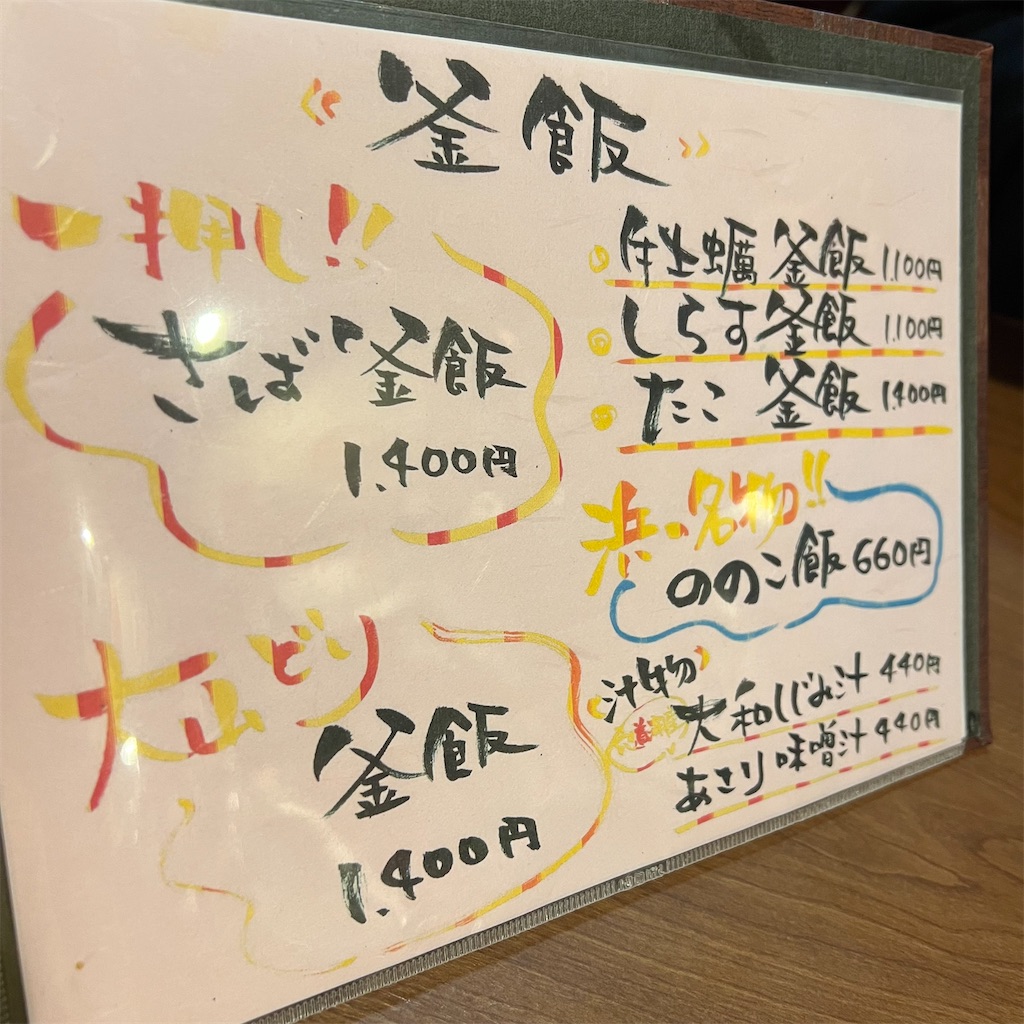 釜飯
一押し!!
さば釜飯
1,400円
大山どり
釜飯
1,400円
牡蠣釜飯 1,100円
しらす釜飯 1,100円
たこ釜飯 1,400円
浜の名物!!
ののこ飯 660円
汁物
大和しじみ汁 440円
あさり味噌汁 440円